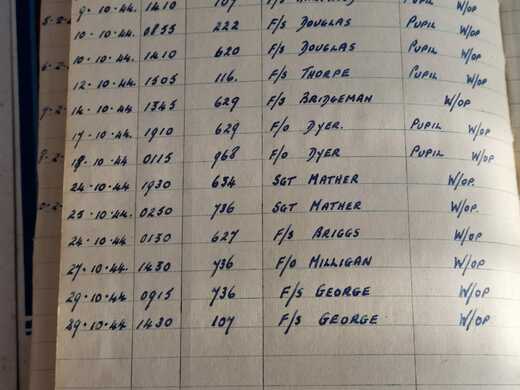 9·10·44 1410 107 F/S PUPIL W/OP
10·10·44. 0855 222 F/S DOUGLAS PUPIL W/OP
10·10·44. 1410 620 F/S DOUGLAS PUPIL W/OP
12·10·44 1505 116. F/S THORPE PUPIL W/OP
14·10·44 1345 629 F/S BRIDGEMAN W/OP
17·10·44. 1910 629 F/O DYER. PUPIL W/OP
18·10·44 0115 968 F/O DYER PUPIL W/OP
24·10·44 1930 634 SGT MATHER W/OP
25·10·44. 0250 736 SGT MATHER W/OP.
24·10·44 0130 627 F/S BRIGGS W/OP
27·10·44. 1430 736 F/O MILLIGAN W/OP
29·10·44 0915 736 F/S GEORGE W/OP
29·10·44 1430 107 F/S GEORGE W/OP